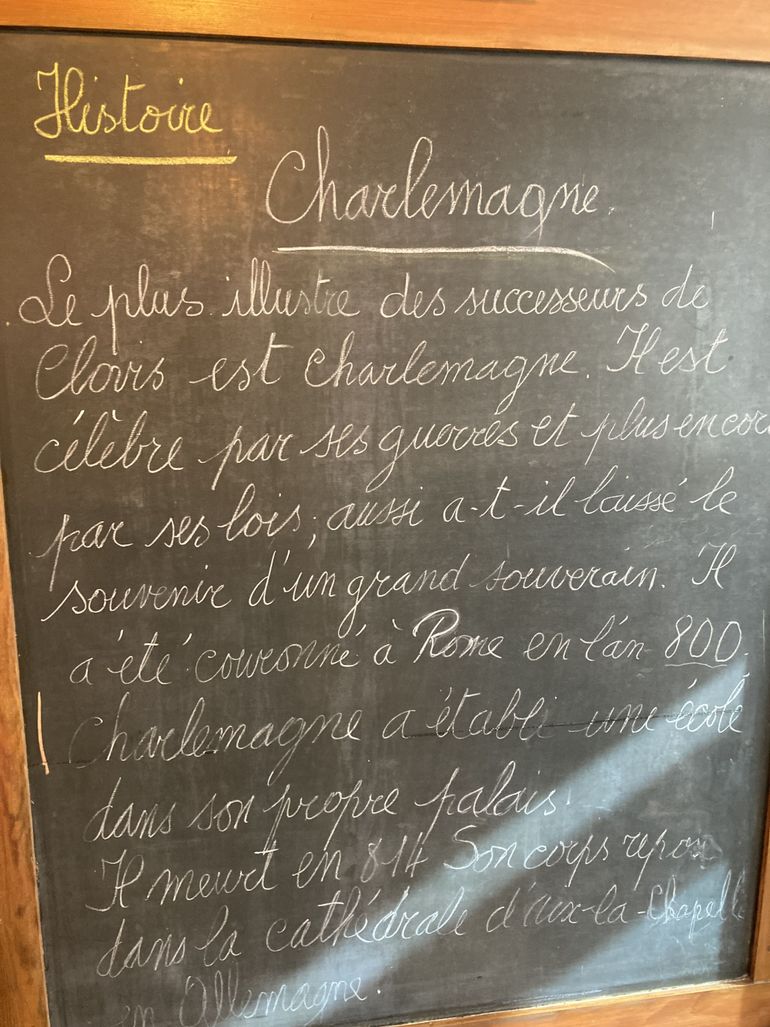 Histoire
Charlemagne.
Le plus illustre des successeurs de
Clovis est Charlemagne. Il est
célèbre par ses guerres et plus encor
par ses lois, aussi a-t-il laissé le
souvenir d'un grand souverain. Il
a été couronné à Rome en l'an 800.
Charlemagne a établi une école
dans son propre palais.
Il meurt en 814 Son corps repose
dans la cathédrale d'aix-la-Chapelle
en Allemagne.